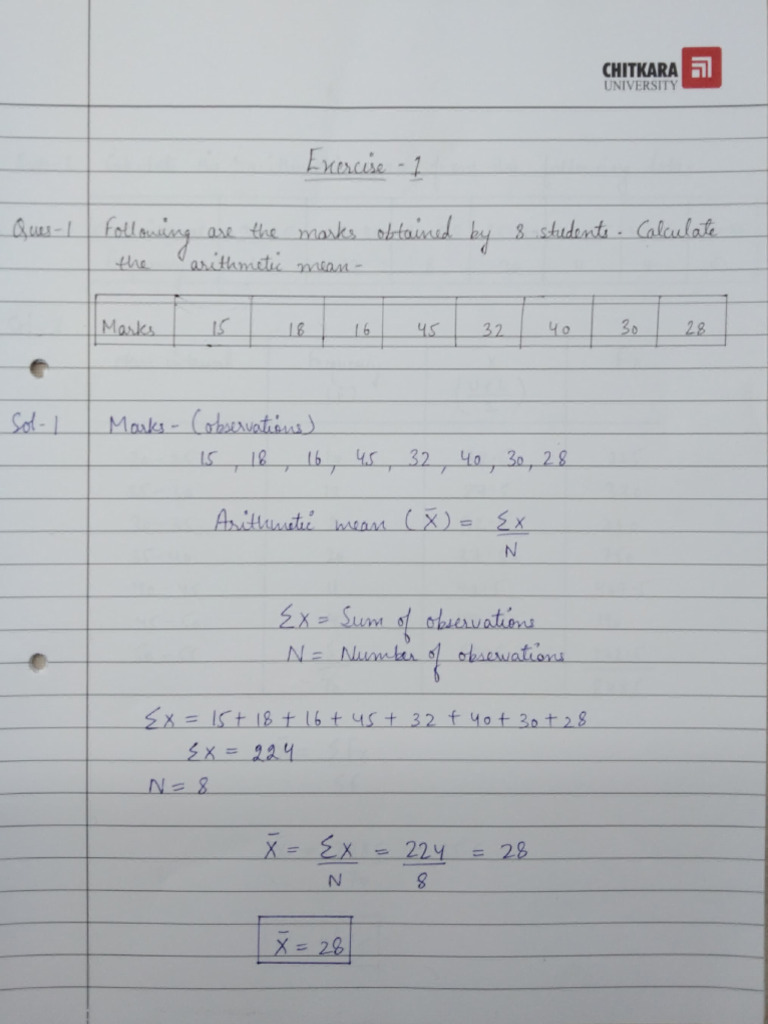 CHITKARA
UNIVERSITY
Exercise - 1
Ques-1 Following are the marks obtained by 8 students. Calculate
the arithmetic mean -
Marks 15 18 16 45 32 40 30 28
Sol-1 Marks - (observations)
15, 18, 16, 45, 32, 40, 30, 28
Arithmetic mean (X̄) = Σx
N
Σx = Sum of observations
N = Number of observations
Σx = 15 + 18 + 16 + 45 + 32 + 40 + 30 + 28
Σx = 224
N = 8
X̄ = Σx = 224 = 28
N 8
X̄ = 28